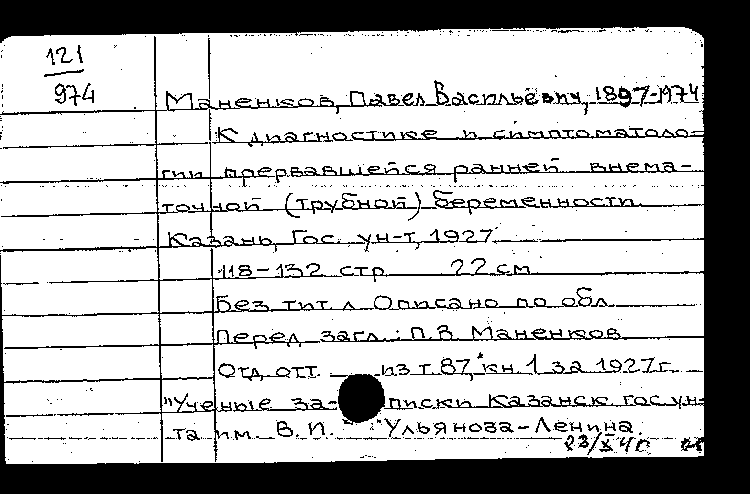 121
974
Маненков, Павел Васильевич, 1897-1974
К диагностике и симптоматоло=
гии прервавшейся ранней внема-
точной (трубной) беременности
Казань, Гос. ун-т, 1927
118-132 стр 22 см
Без тит л Описано по обл
Перед загл.: П.В. Маненков
Отд. отт из т. 87, кн 1 за 1927г.
"Ученые за- писки Казанск гос ун=
та им. В. И. Ульянова-Ленина.
23/X 40